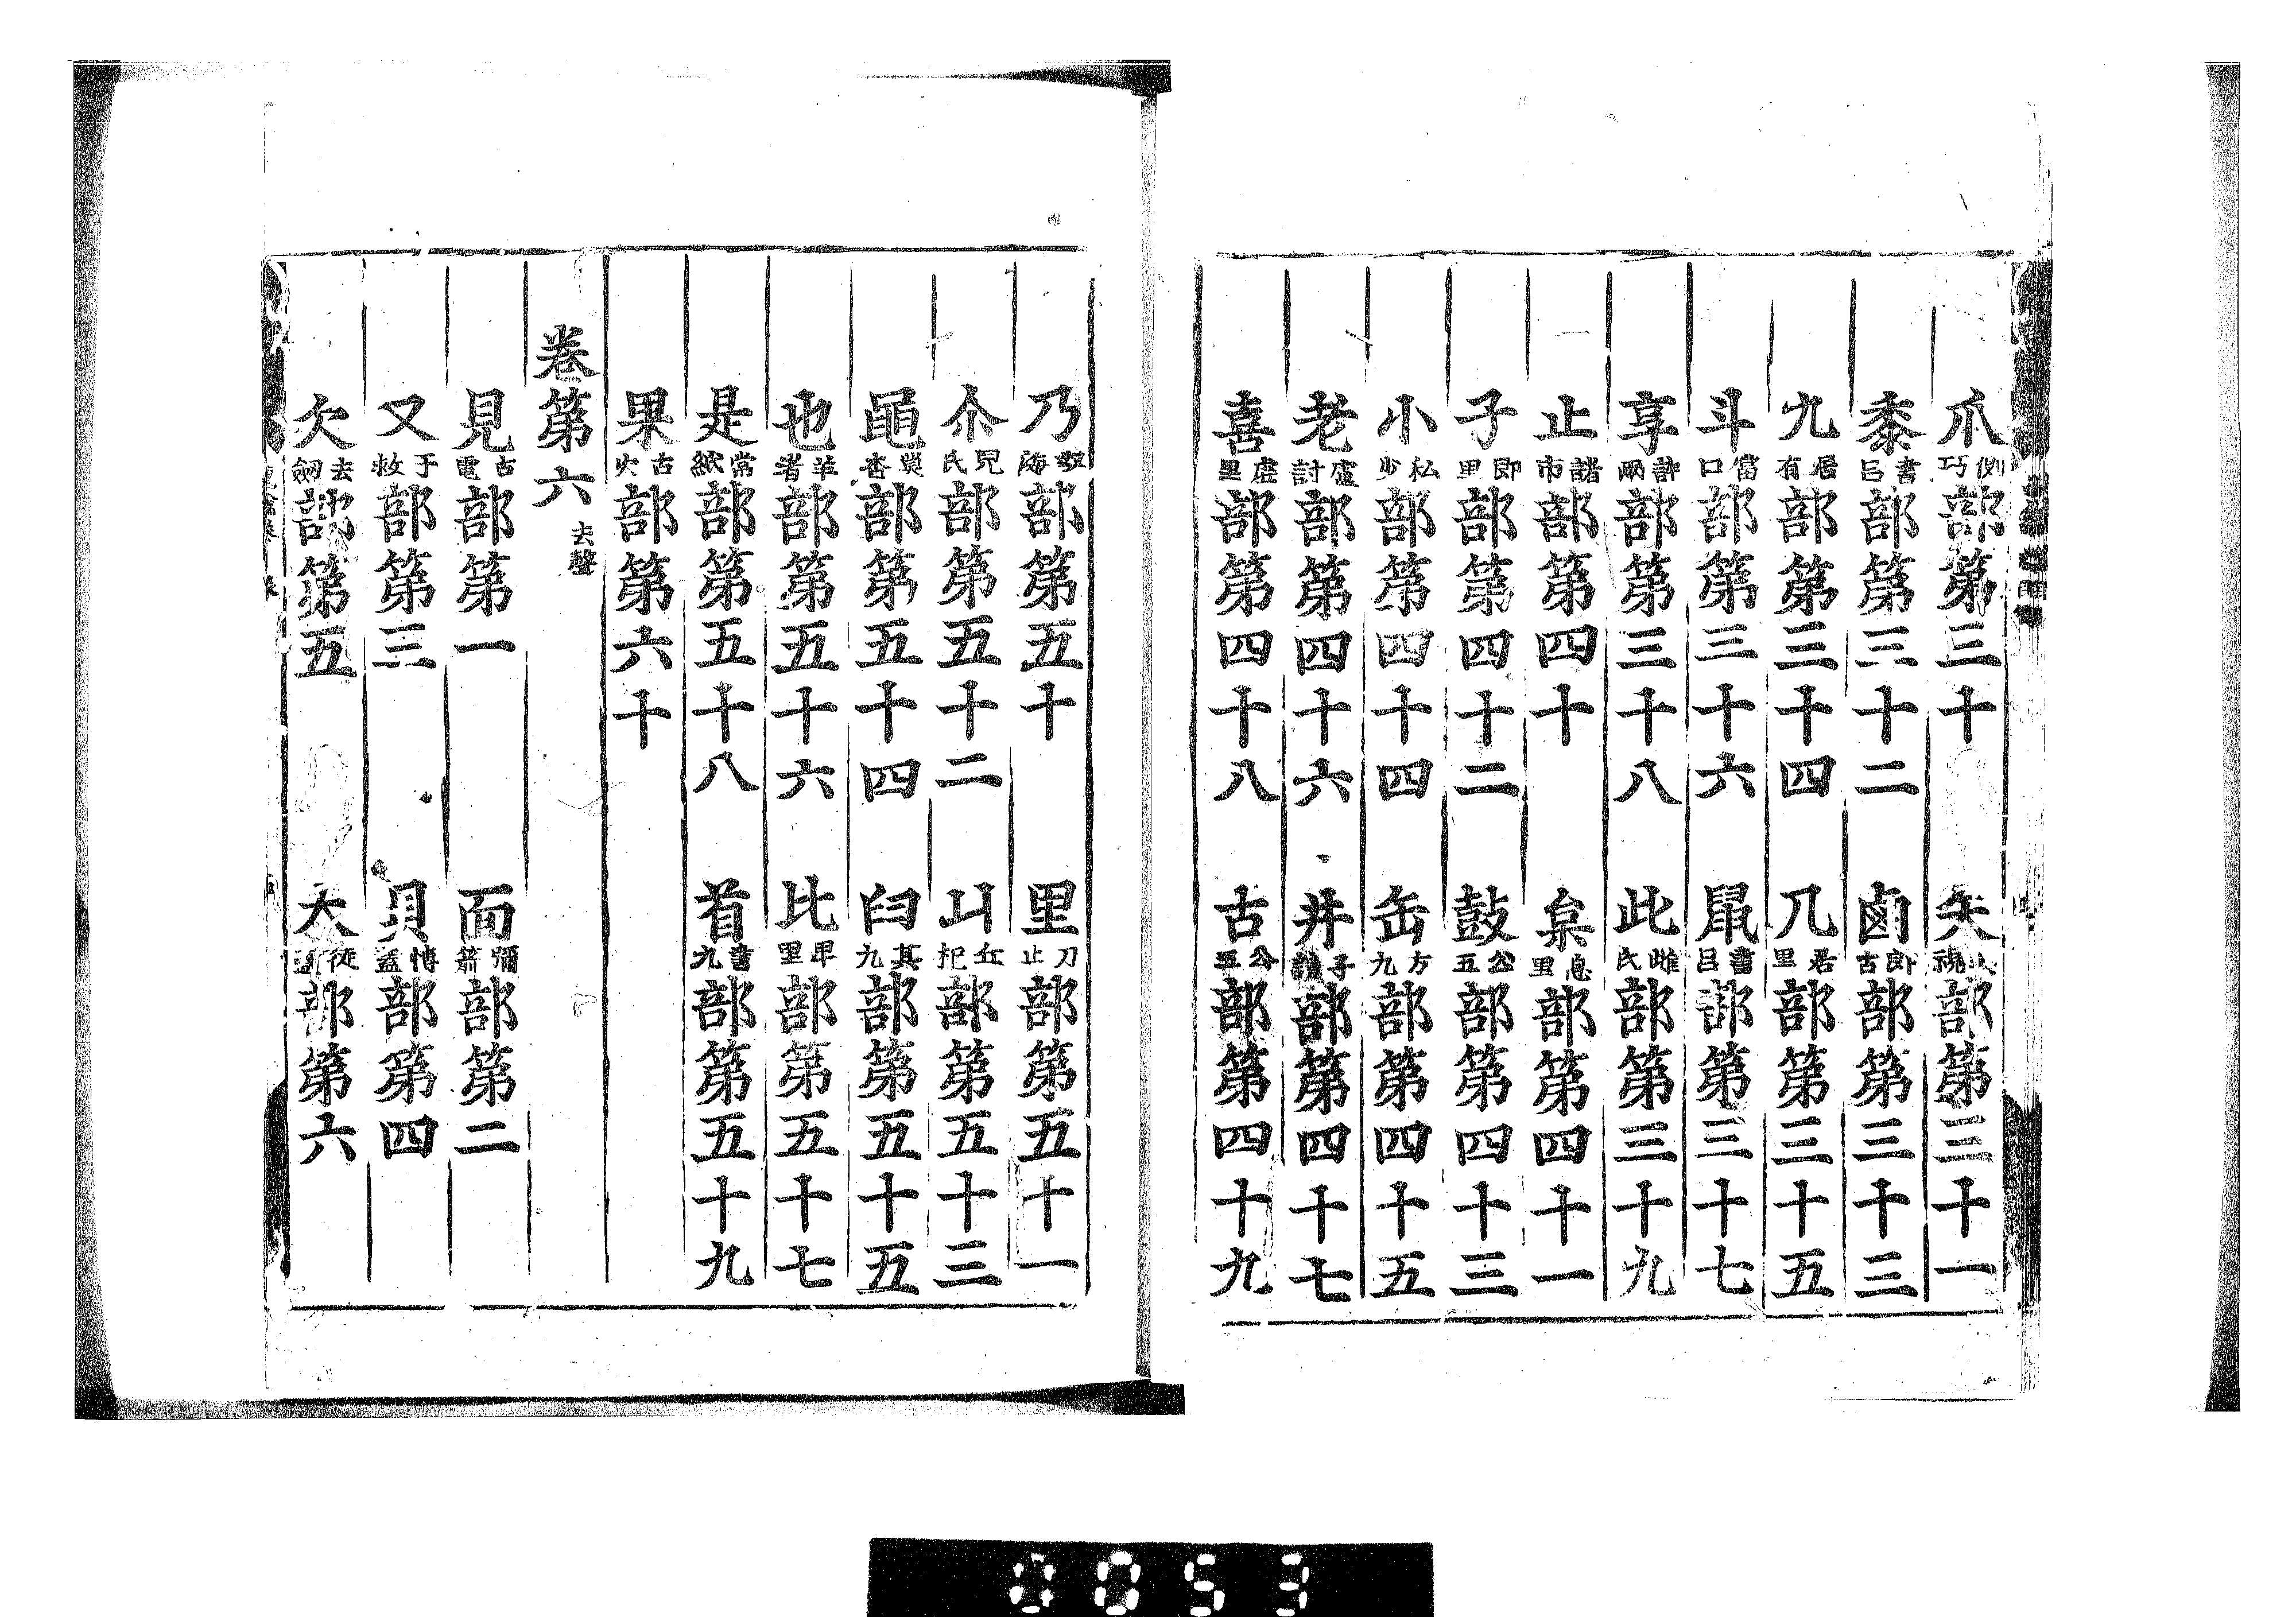 爪側巧部第三十　矢部第三十一
黍書呂部第三十二　鹵郎古部第三十三
九居有部第三十四　几居里部第三十五
斗當口部第三十六　鼠書呂部第三十七
享許兩部第三十八　此雌氏部第三十九
止諸市部第四十　枲息里部第四十一
子即里部第四十二　鼓公五部第四十三
小私少部第四十四　缶方九部第四十五
老盧討部第四十六　井子部第四十七
喜虛里部第四十八　古公五部第四十九
乃奴海部第五十　里力止部第五十一
尒兒氏部第五十二　丘部第五十三
黽部第五十四　臼其九部第五十五
也羊者部第五十六　比卑里部第五十七
是常紙部第五十八　首書九部第五十九
果古火部第六十
卷第六去聲
見古電部第一　面彌箭部第二
又于救部第三　貝博蓋部第四
欠去劒部第五　大徒部第六
0053